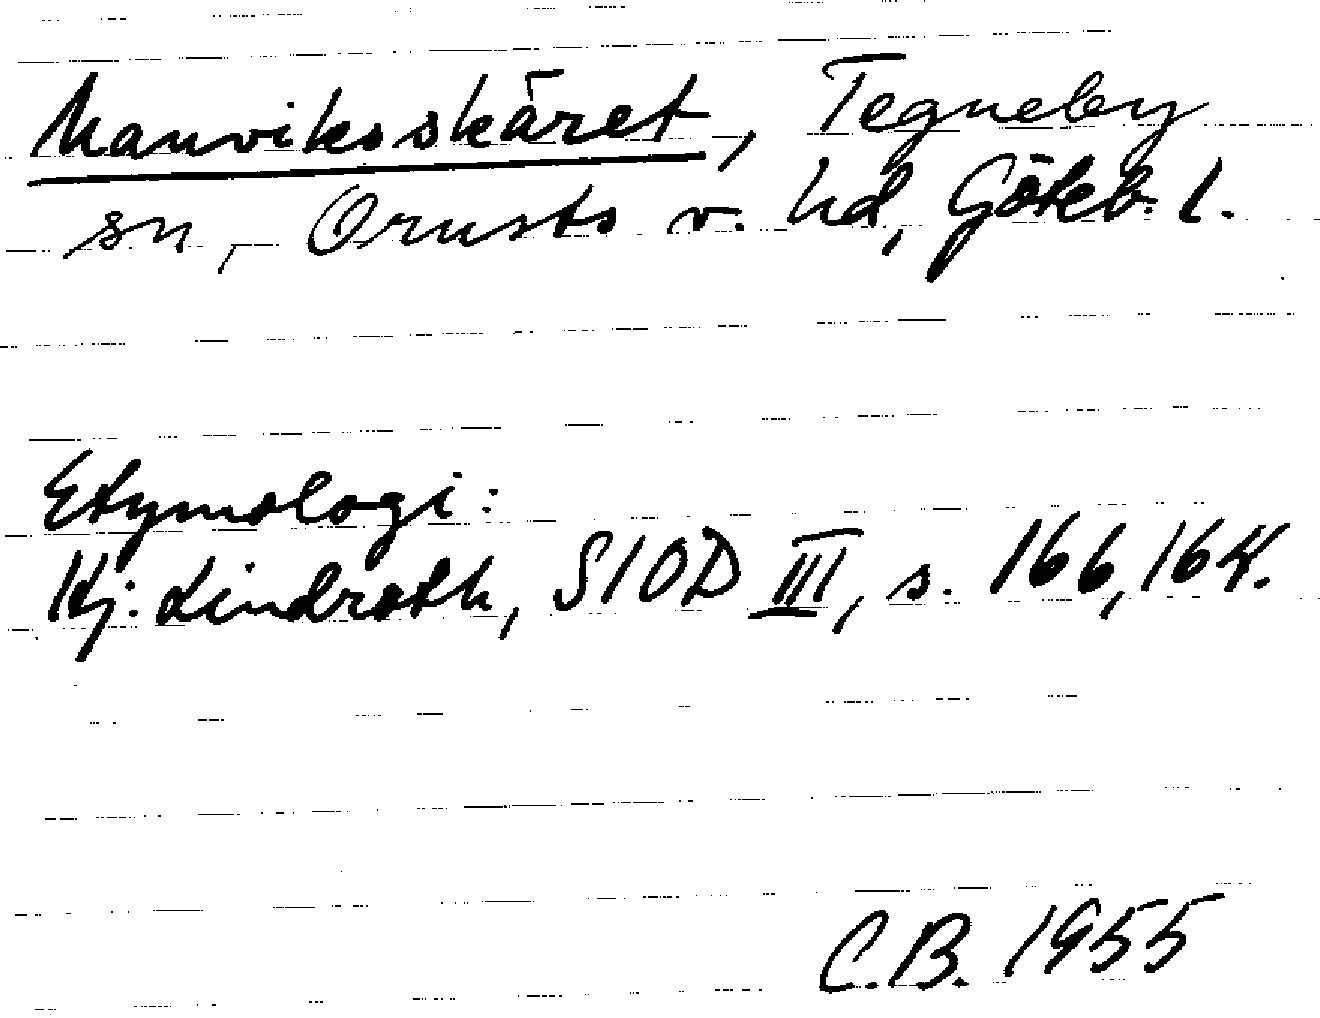 Manviksskäret, Tegneby
sn, Orusts v. hd, Göteb. l.
Etymologi:
Hj. Lindroth, SIOD III, s. 166, 164.
C.B. 1955